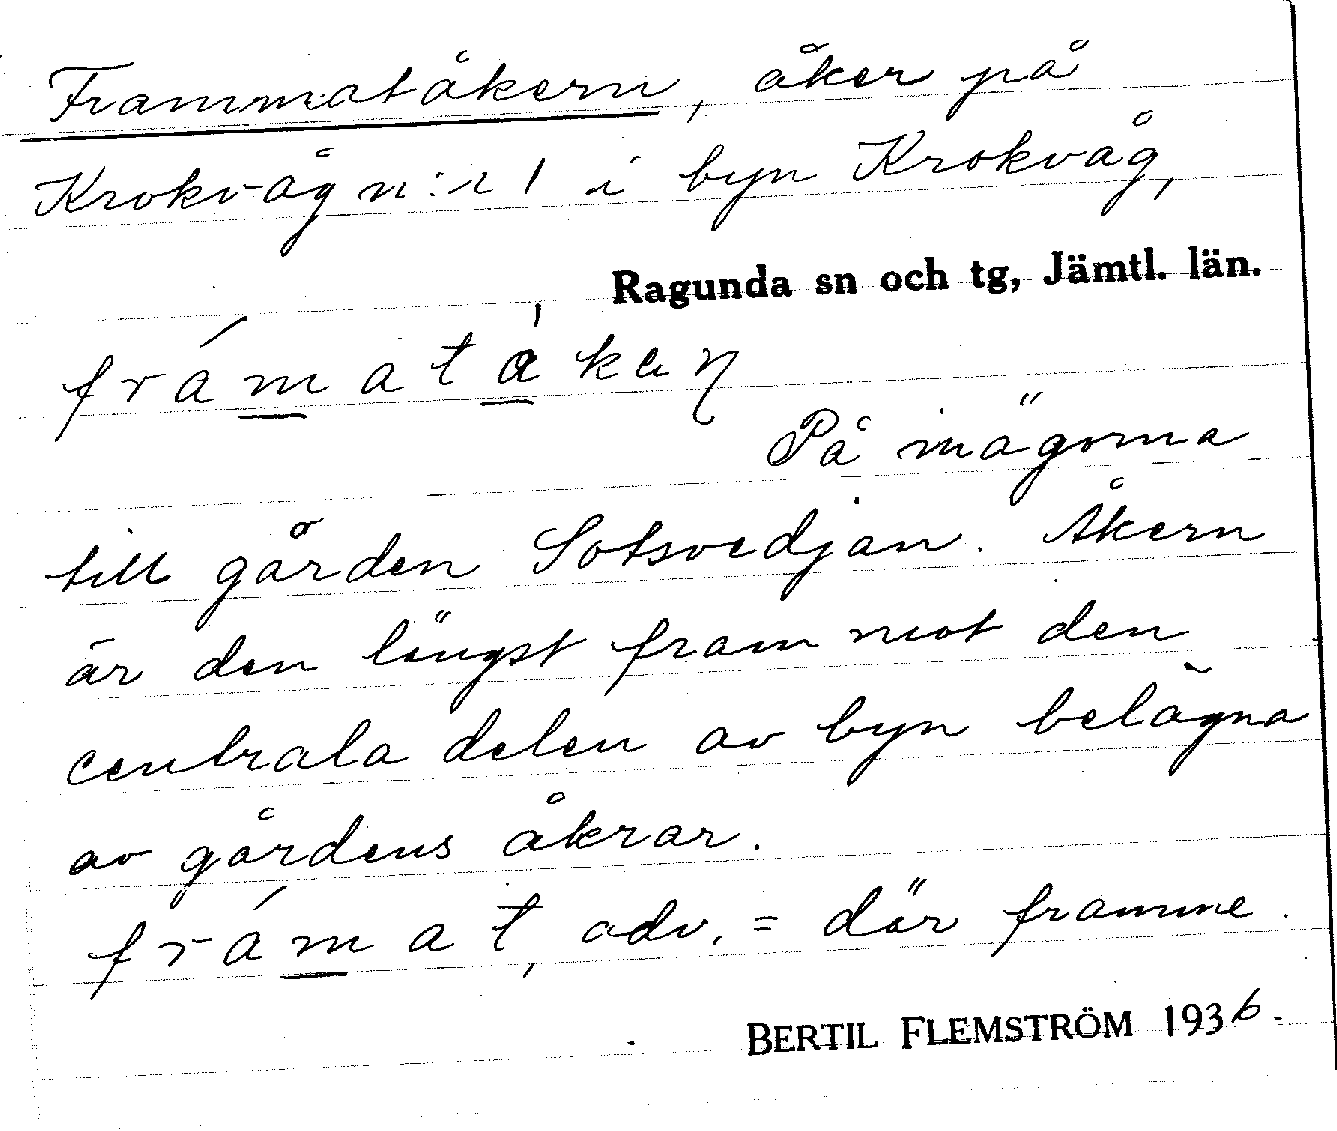 Frammatåkern, åker på
Krokvåg n:r 1 i byn Krokvåg,
Ragunda sn och tg, Jämtl. län.
frámatàkaɳ
På inägorna
till gården Sotsvedjan. Åkern
är den längst fram mot den
centrala delen av byn belägna
av gårdens åkrar.
frámat, adv. = där framme.
BERTIL FLEMSTRÖM 1936.